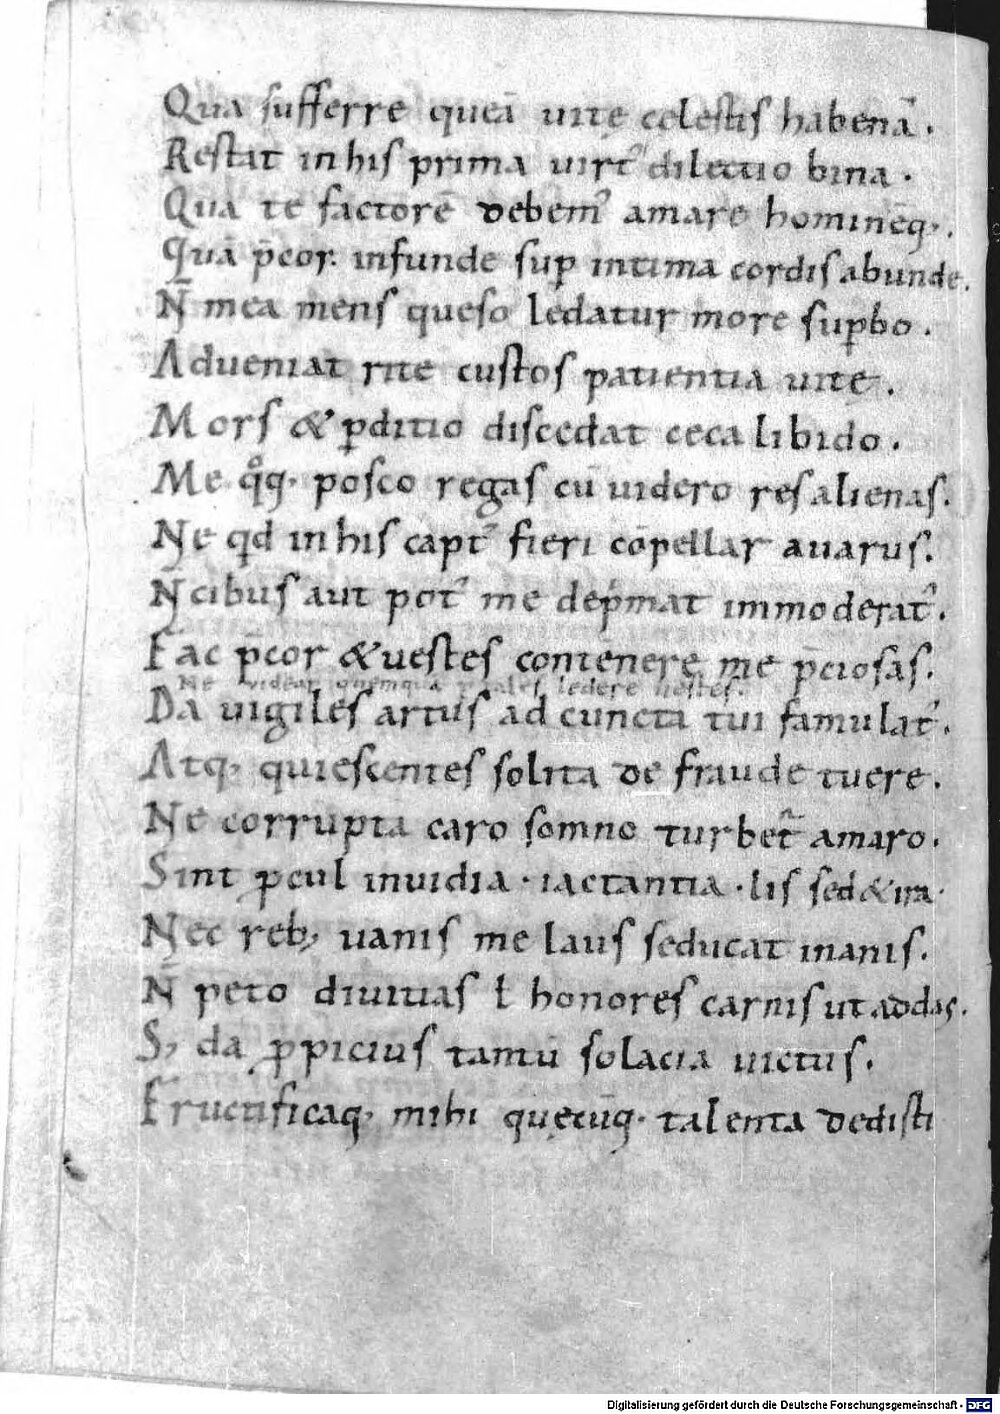 Qua sufferre queā uitę celestis habenā.
Restat in his prima uirt᾿ dilectio bina.
Qua te factorē debem᾿ amare hominēq;.
Quā p̄cor infunde sup̱ intima cordis abunde.
N̄ mea mens queso ledatur more sup̱bo.
Adueniat rite custos patientia uitę.
Mors & p̱ditio discedat ceca libido.
Me qͦq; posco regas cū uidero res alienas.
Ne qd in his capt᾿ fieri cōpellar auarus.
N̄ cibus aut pot᾿ me dep̄mat immoderat᾿.
Fac p̄cor & uestes contenere me p̄ciosas.
Ne videar quemquā p tales ledere uestes.
Da uigiles artus ad cuncta tui famulat᾿.
Atq; quiescentes solita de fraude tuere.
Ne corrupta caro somno turbet᾿ amaro.
Sint ꝓcul inuidia · iactantia · lis sed & ira·
Nec reb; uanis me laus seducat inanis.
N̄ peto diuitias ł honores carnis ut addas.
S; da ꝓpicius tantū solacia uictus.
Fructificaq; mihi quęcūq; talenta dedisti
Digitalisierung gefördert durch die Deutsche Forschungsgemeinschaft - DFG